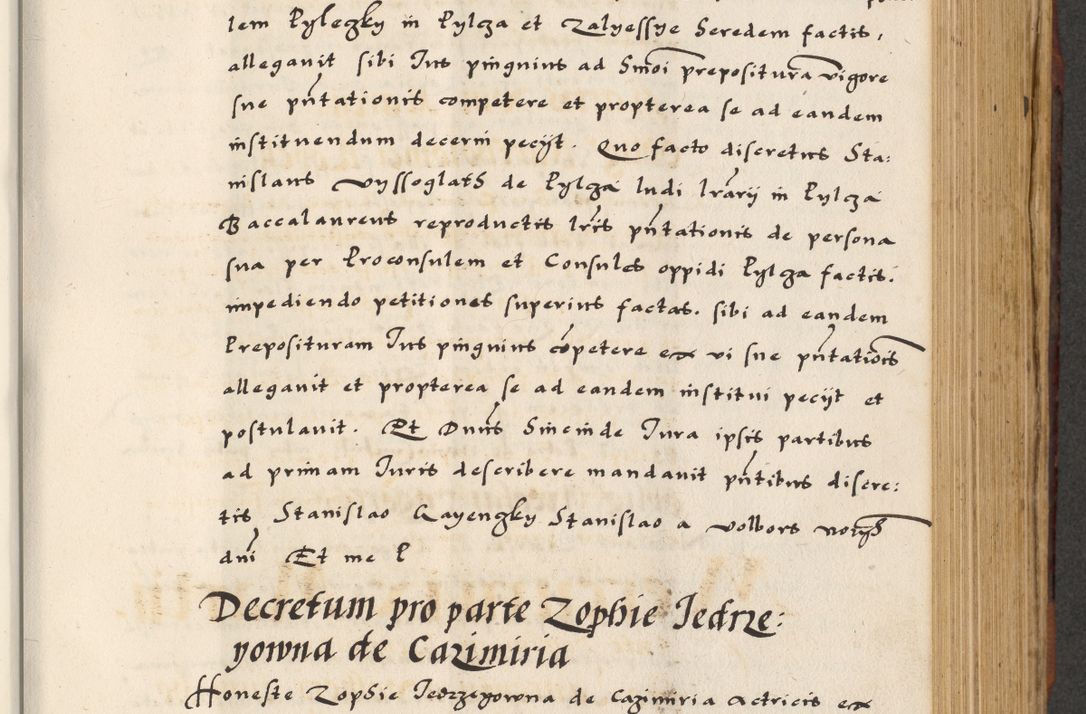 lem Pyleczky in Pylcza et Zalyessye Seredem factis,
allegavit sibi Ius pinguius ad Smoi prepositura vigore
sue pñtationis competere et propterea se ad eandem
instituendum decerni pecijt. Quo facto discretus Sta:
nislaus Vyssoglats de Pylcza ludi lrarij in Pylcza
Baccalaureus reproductis lris pñtationis de persona
sua per Proconsulem et Consules oppidi Pylcza factis.
impediendo petitiones superius factas. sibi ad eandem
Preposituram Ius pinguius cõpetere ex vi sue pñtationis
allegavit et propterea se ad eandem institui pecijt et
postulavit. Et Dnus Sineinde Iura ipsis partibus
ad primam Iuris describere mandavit pñtibus discre:
tis Stanislao Gayenczky Stanislao a Volbors notrys
dni Et me P
Decretum pro parte Zophie Iedrze:
yowna de Cazimiria
Honeste Zophie Iedrzeyowna de Cazimiria actricis ex